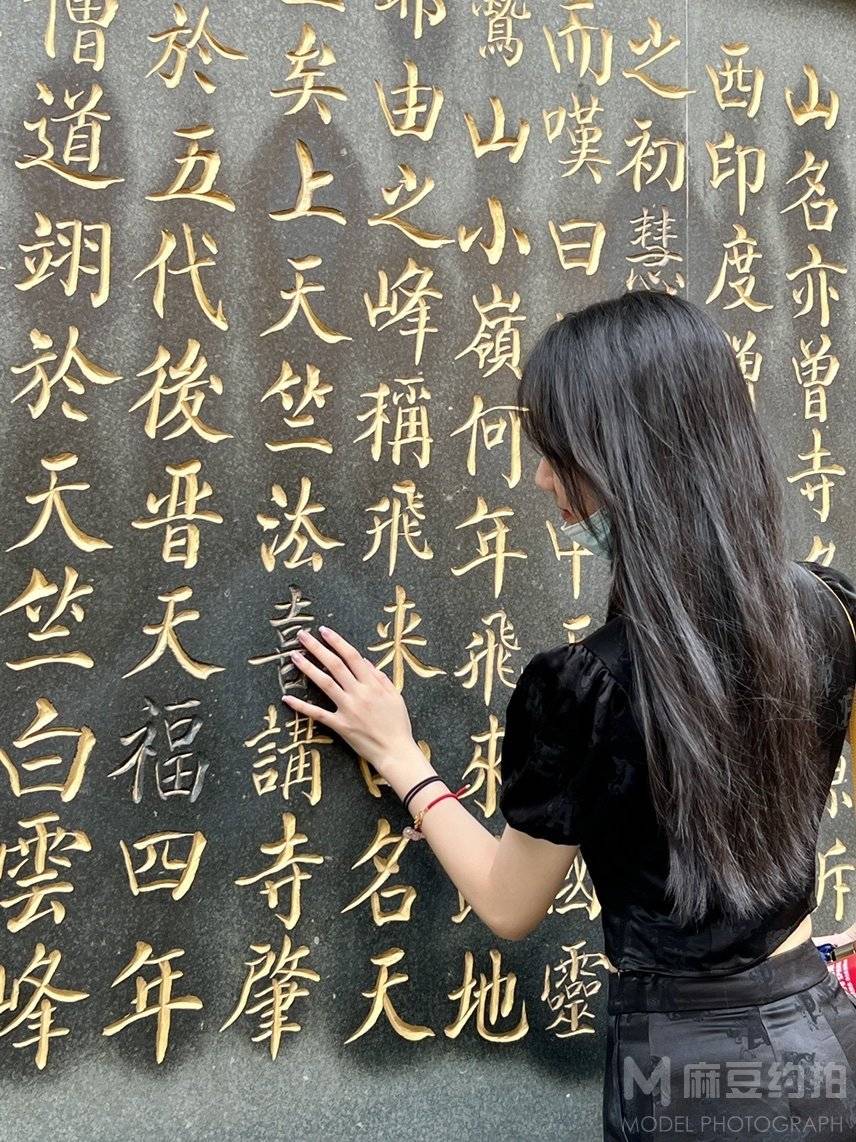 山名亦曾寺
西印度
之初慧
而嘆曰中天國靈
鷲山小嶺何年飛來地
耶由之峰稱飛来名天
矣上天竺法喜講寺肇
於五代後晋天福四年
僧道翊於天竺白雲峰
M 麻豆约拍
MODEL PHOTOGRAPH